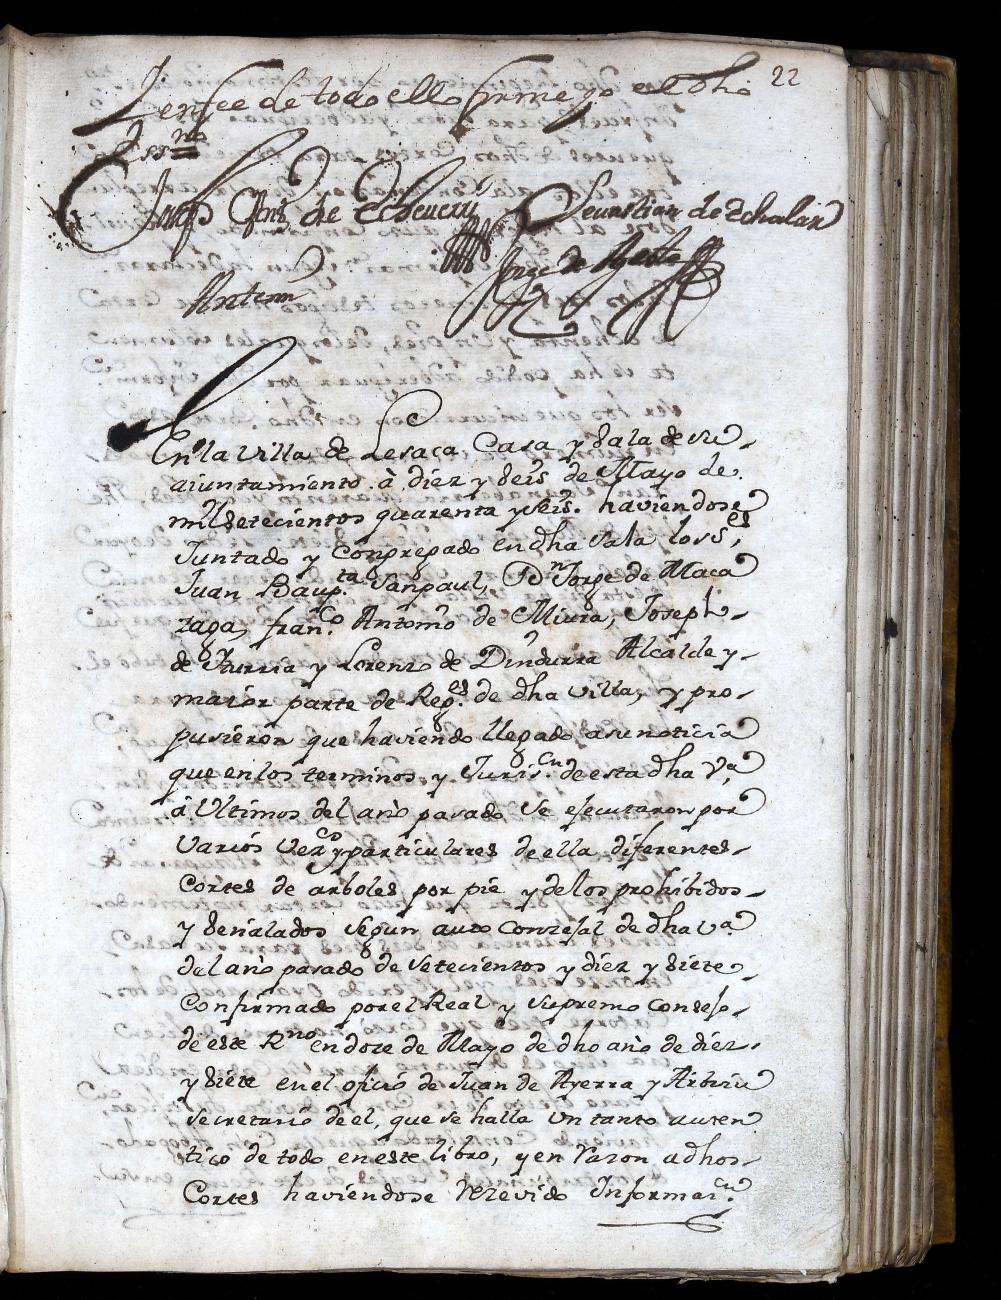 22
Y en fee de todo ello firme yo el dho
Essno
Joseph Antto de Echeverr Sevastian de Echalar
Jorge de
Ante mi
En la Villa de Lesaca Casa y Sala de su
aiuntamiento à diez y seis de Mayo de
mil setecientos quarenta y seis. haviendose
Juntado y Congregado en dha sala los ss.es
Juan Baup.ta Sanpaul, Dn Jorge de Maca
zaga, fran.co Antonio de Miura, Joseph
de Yturria y Lorenzo de Dindurra Alcalde y
maior parte de Reg.es de dha villa, y pro-
pusieron que haviendo llegado asu noticia
que en los terminos y Juris.cn de esta dha Va
à Ultimos del año pasado se ejecutaron por
varios vez.os y particulares de ella diferentes
Cortes de arboles por pie y de los prohibidos
y señalados segun auto Conzejal de dha va
del año pasado de setecientos y diez y siete
Confirmado por el Real y supremo consejo
de este Rno en doze de Mayo de dho año de diez
y siete en el oficio de Juan de Ayerra y Arbizu
secretario de el, que se halla un tanto auten
tico de todo en este libro, y en razon a dhos
Cortes haviendose rezevido Informac.on